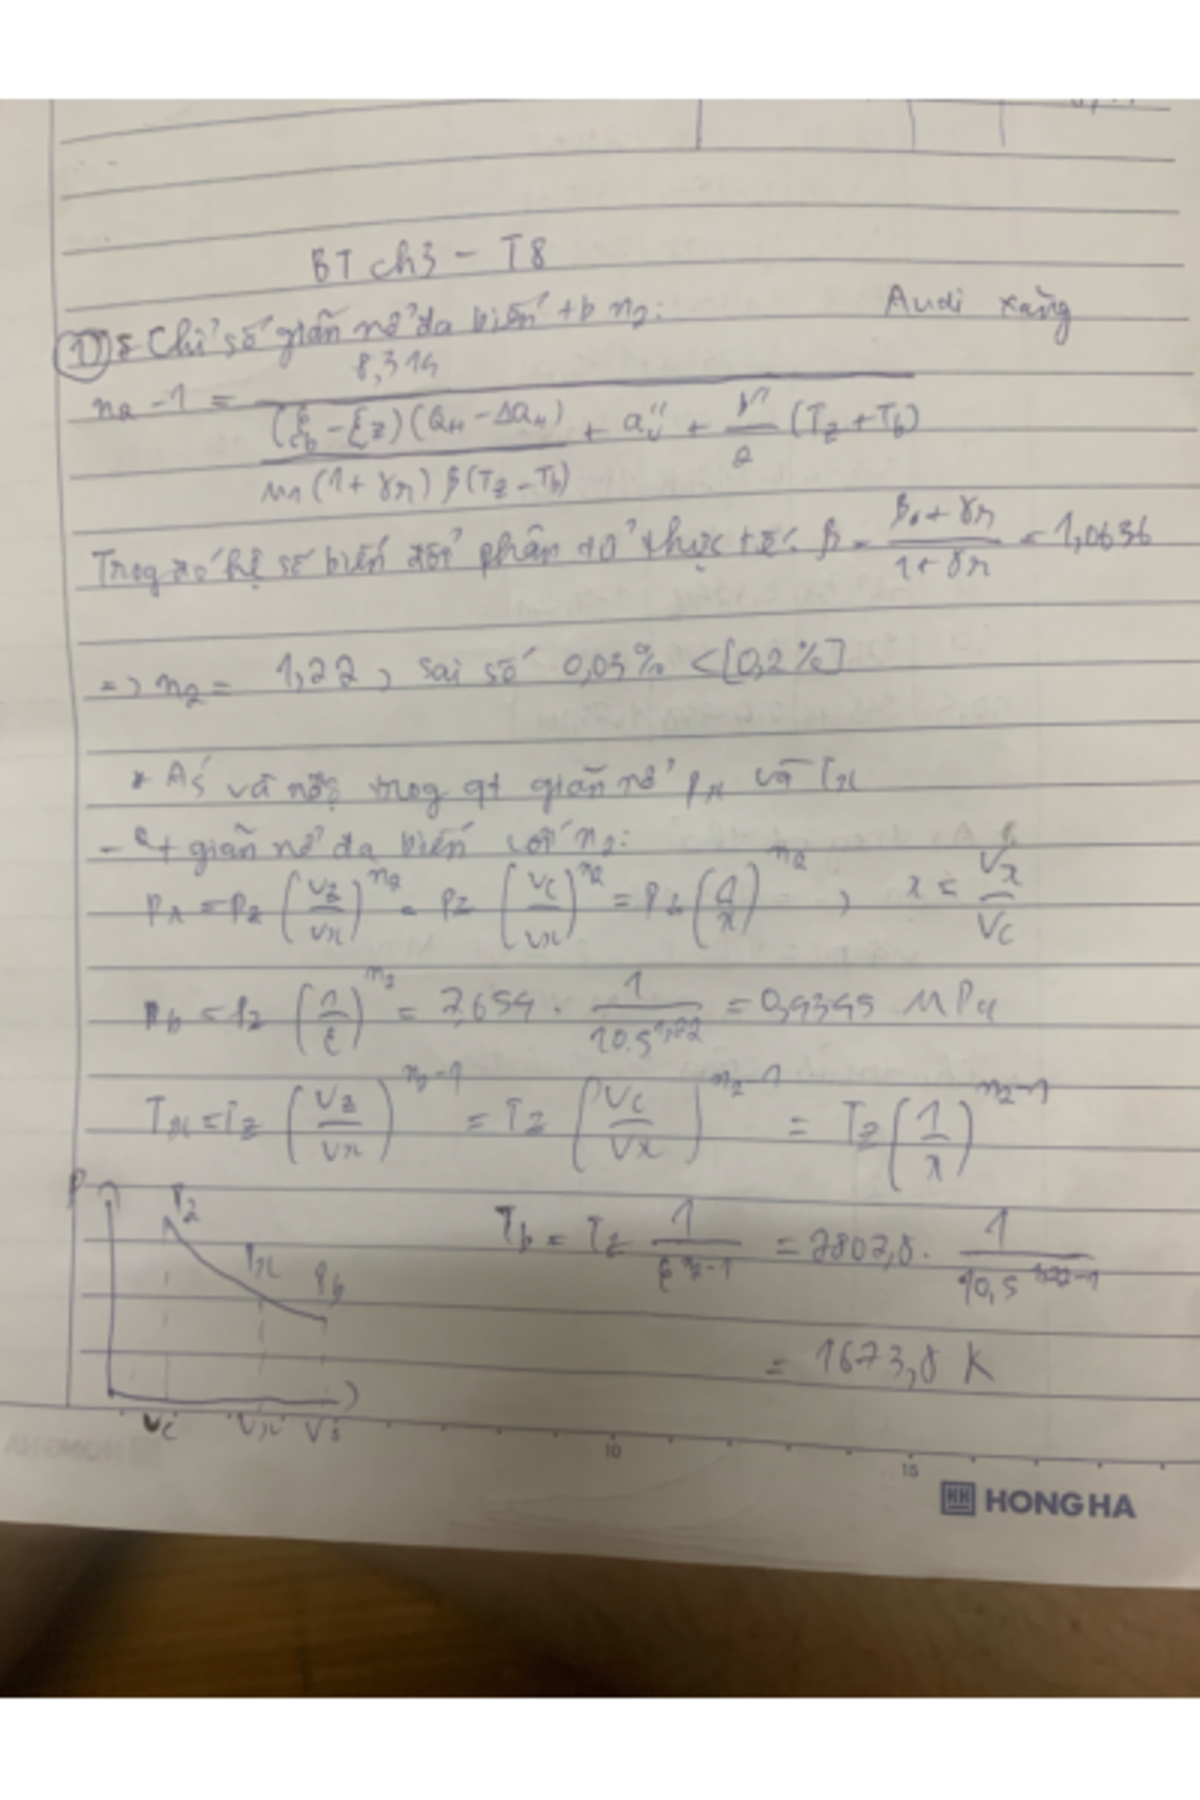 BT ch3 - T8
Audi xăng
1) * Chỉ số giãn nở đa biến tb n₂:
n₂ - 1 = 8,314 / [ (ξb - ξz)(QH - ΔQH) / (M₁(1 + γr) β(Tz - Tb)) + a″v + b″/2 (Tz + Tb) ]
Trog đó hệ số biến đổi phân tử thực tế: β = (β₀ + γr) / (1 + γr) = 1,0636
=> n₂ = 1,22 , sai số 0,03% < [0,2%]
* AS và nđộ trog qt giãn nở px và Tx
- Qt giãn nở đa biến với n₂:
px = pz (Vz/Vx)^n₂ = pz (Vc/Vx)^n₂ = pz (1/x)^n₂ , x = Vx/Vc
pb = pz (1/ε)^n₂ = 7,654 . 1/10.5^1,22 = 0,4345 MPa
Tx = Tz (Vz/Vx)^n₂-1 = Tz (Vc/Vx)^n₂-1 = Tz (1/x)^n₂-1
Tb = Tz 1/ε^n₂-1 = 2807,8 . 1/10,5^1,22-1
= 1673,8 K
P
Pz
Px
Pb
Vc Vx
10
15
HONG HA